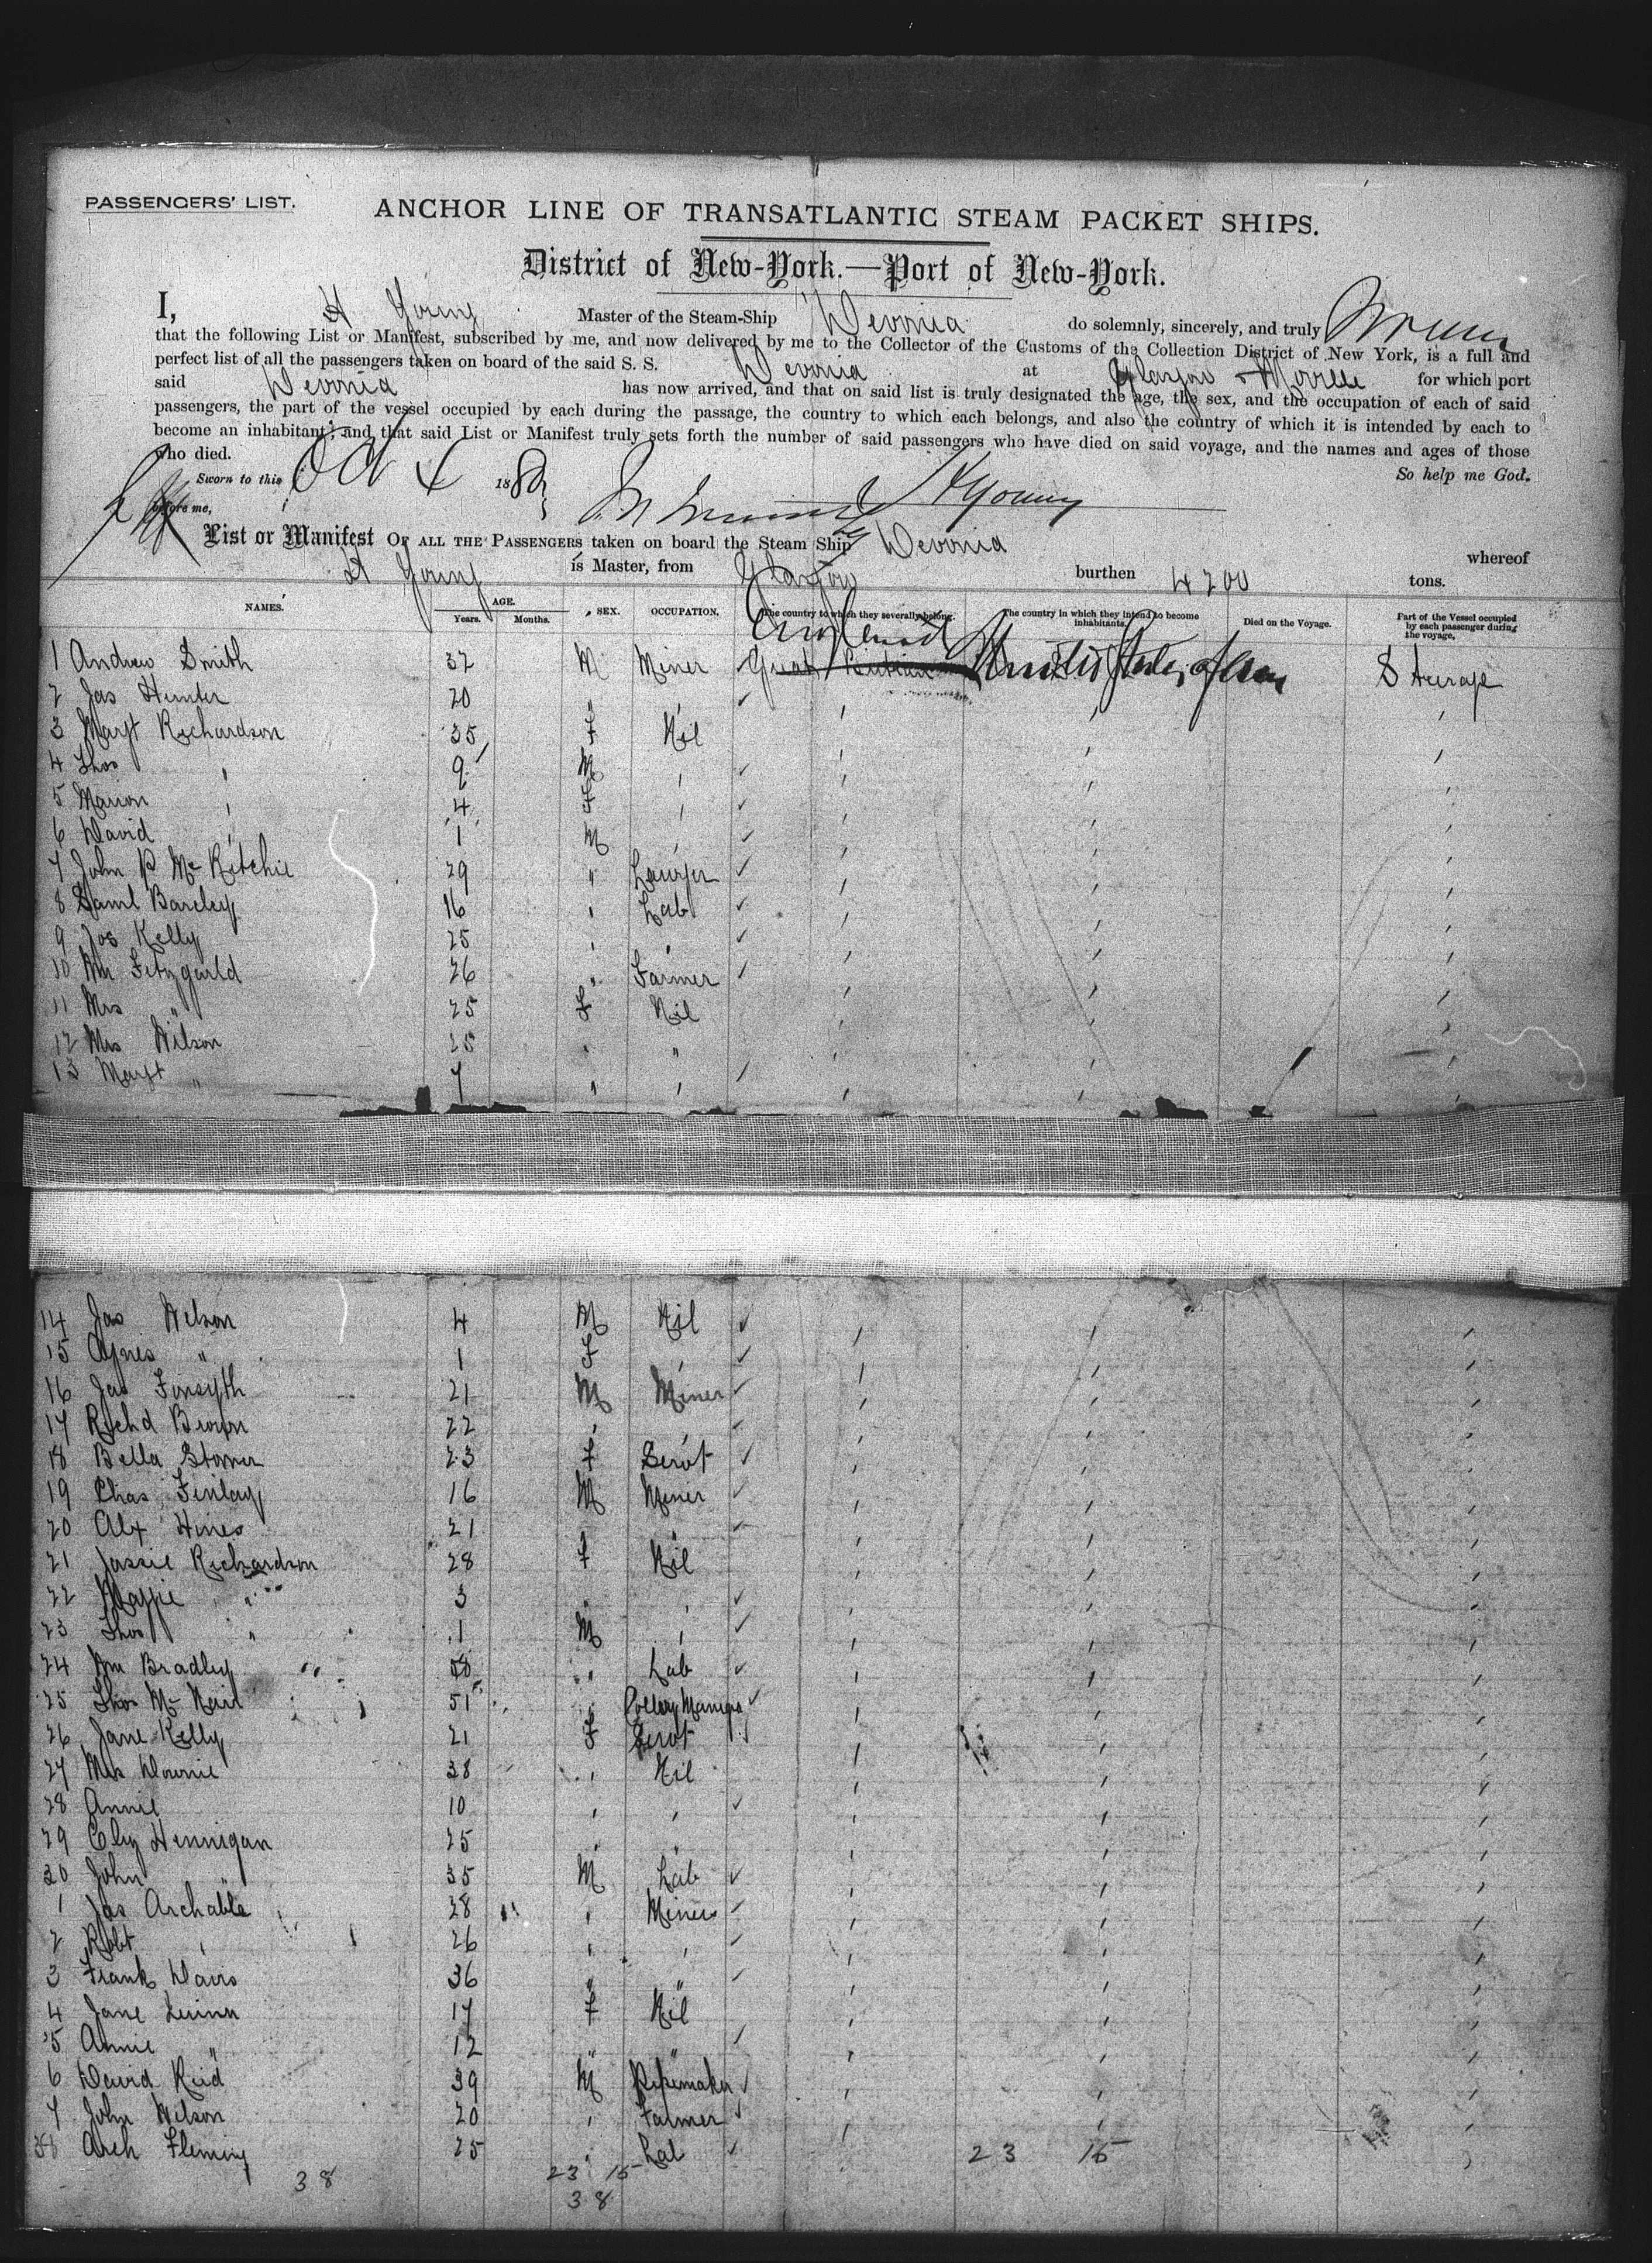 PASSENGERS' LIST.
ANCHOR LINE OF TRANSATLANTIC STEAM PACKET SHIPS.
District of New-York.—Port of New-York.
I, H Young Master of the Steam-Ship Devonia do solemnly, sincerely, and truly
that the following List or Manifest, subscribed by me, and now delivered by me to the Collector of the Customs of the Collection District of New York, is a full and
perfect list of all the passengers taken on board of the said S. S. Devonia at Glasgow & Moville for which port
said Devonia has now arrived, and that on said list is truly designated the age, the sex, and the occupation of each of said
passengers, the part of the vessel occupied by each during the passage, the country to which each belongs, and also the country of which it is intended by each to
become an inhabitant; and that said List or Manifest truly sets forth the number of said passengers who have died on said voyage, and the names and ages of those
who died.
So help me God.
Sworn to this Oct 188
before me, H Young
List or Manifest OF ALL THE PASSENGERS taken on board the Steam Ship Devonia whereof
H Young is Master, from Glasgow burthen 4200 tons.
NAMES. AGE. Years. Months. SEX. OCCUPATION. The country to which they severally belong. The country in which they intend to become inhabitants. Died on the Voyage. Part of the Vessel occupied by each passenger during the voyage.
1 Andrew Smith 32 M Miner Great Britain England United States of Steerage
2 Jas Hunter 20 " "
3 Margt Richardson 35 F Nil
4 Thos " 9 M "
5 Marion " 4 F "
6 David " 1 M "
7 John P McRitchie 29 " Lawyer
8 Saml Barcley 16 " Lab
9 Jos Kelly 25 " "
10 Wm Fitzgarld 26 " Farmer
11 Mrs " 25 F Nil
12 Mrs Wilson 25 " "
13 Margt " 7 " "
14 Jas Wilson 4 M Nil
15 Agnes " 1 F "
16 Jas Forsyth 21 M Miner
17 Richd Brown 22 " "
18 Bella Stormer 23 F Servt
19 Chas Finlay 16 M Miner
20 Alx Hines 21 " "
21 Jessie Richardson 28 F Nil
22 Maggie " 3 " "
23 Thos " 1 M "
24 Wm Bradley 58 " Lab
25 Thos McNeil 51 "
26 Jane Kelly 21 F Servt
27 Mrs Downie 38 " Nil
28 Annie 10 " "
29 Eliz Hennigan 25 " "
30 John " 35 M Lab
1 Jas Archable 28 " Miner
2 Robt " 26 " "
3 Frank Davis 36 " "
4 Jane Quinn 17 F Nil
5 Annie " 12 " "
6 David Reid 39 M Pipemaker
7 John Wilson 20 " Farmer
38 Arch Fleming 25 " Lab
23 15
38
23 15
38